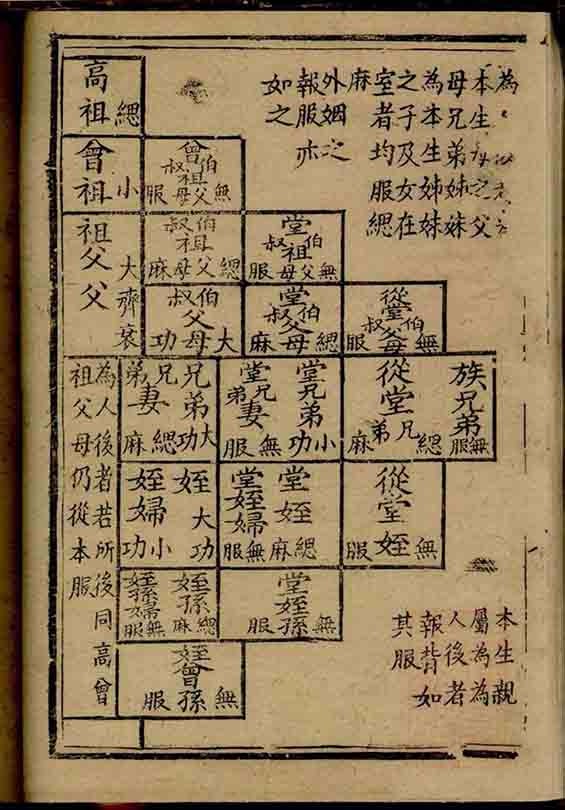 為
本生母之父
母兄弟姊妹
為本生姊妹
之子及女在
室者均服緦
麻
外姻之
報服亦
如之
高祖
緦
曾伯叔祖父母
無服
曾祖
小
堂伯叔祖父母
無服
伯叔祖父母
緦麻
祖父
大
從堂伯叔父母
無服
堂伯叔父母
緦麻
伯叔父母
大功
父
齊衰
族兄弟
無服
從堂兄弟
緦麻
堂兄弟
小功
堂兄弟妻
無服
兄弟
大功
兄弟妻
緦麻
從堂姪
無服
堂姪
緦麻
堂姪婦
無服
姪
大功
姪婦
小功
堂姪孫
無服
姪孫
緦麻
姪孫婦
無服
姪曾孫
無服
為人後者若所後同高曾
祖父母仍從本服
本生親
屬為為
人後者
報皆如
其服